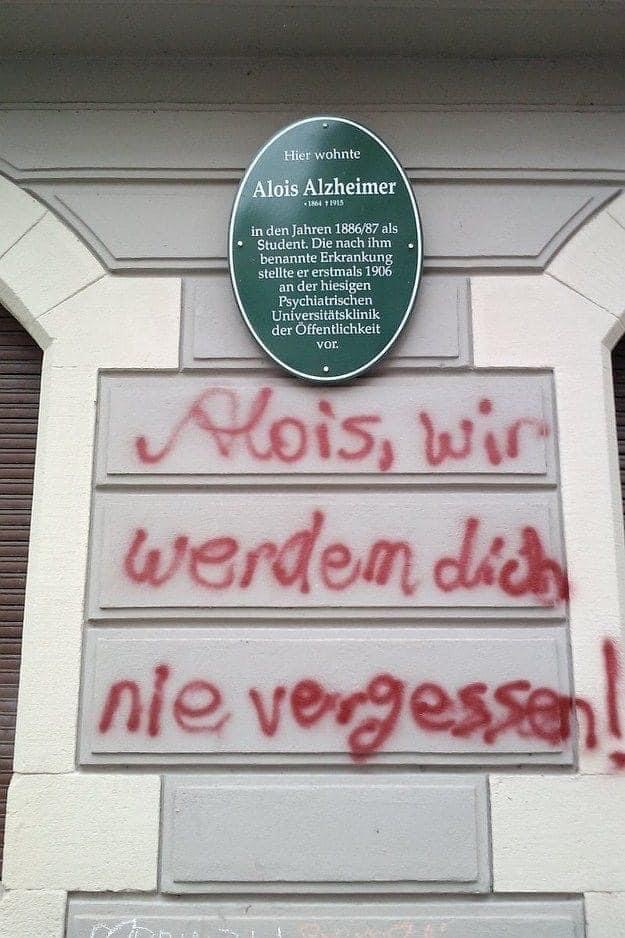 Hier wohnte
Alois Alzheimer
*1864 †1915
in den Jahren 1886/87 als
Student. Die nach ihm
benannte Erkrankung
stellte er erstmals 1906
an der hiesigen
Psychiatrischen
Universitätsklinik
der Öffentlichkeit
vor.
Alois, wir
werdem dich
nie vergessen!